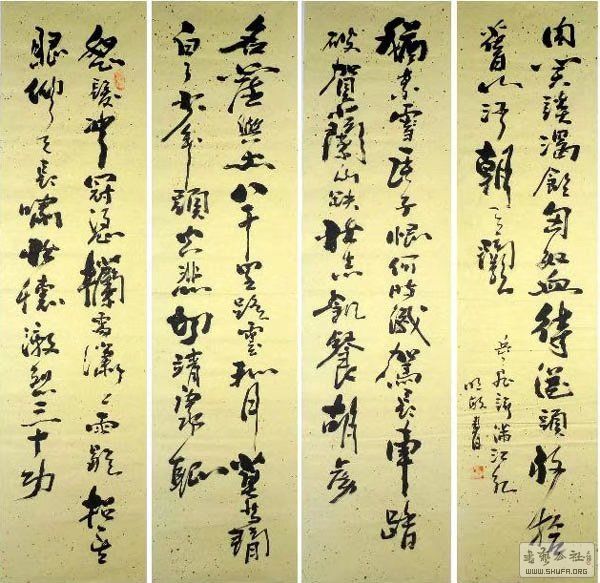 怒髮沖冠憑欄處瀟々雨歇抬望
眼仰天長嘯壯懷激烈三十功
名塵與土八千里路雲和月莫等閒
白了少年頭空悲切靖康恥
猶未雪臣子恨何時滅駕長車踏
破賀蘭山缺壯志飢餐胡虜
肉笑談渴飲匈奴血待從頭收拾
舊山河朝天闕
岳飛詞滿江紅
書
WWW.SHUFA.ORG